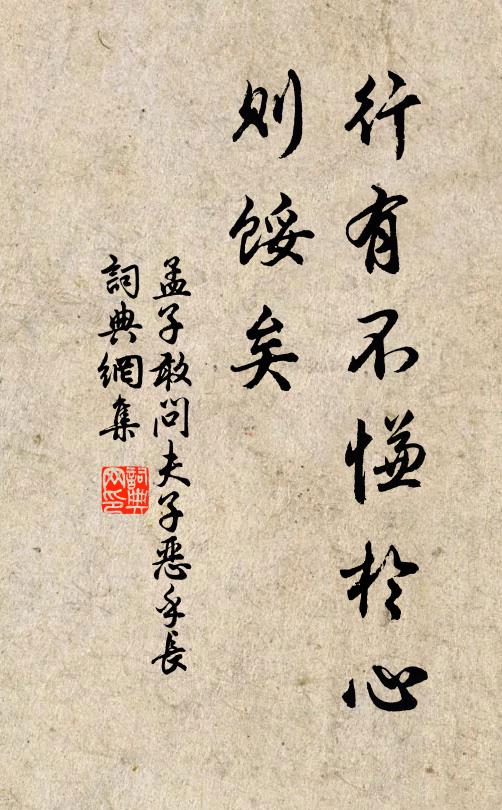 行有不慊於心
則餒矣
孟子敢問夫子惡乎長
詞典網集
詞典网印